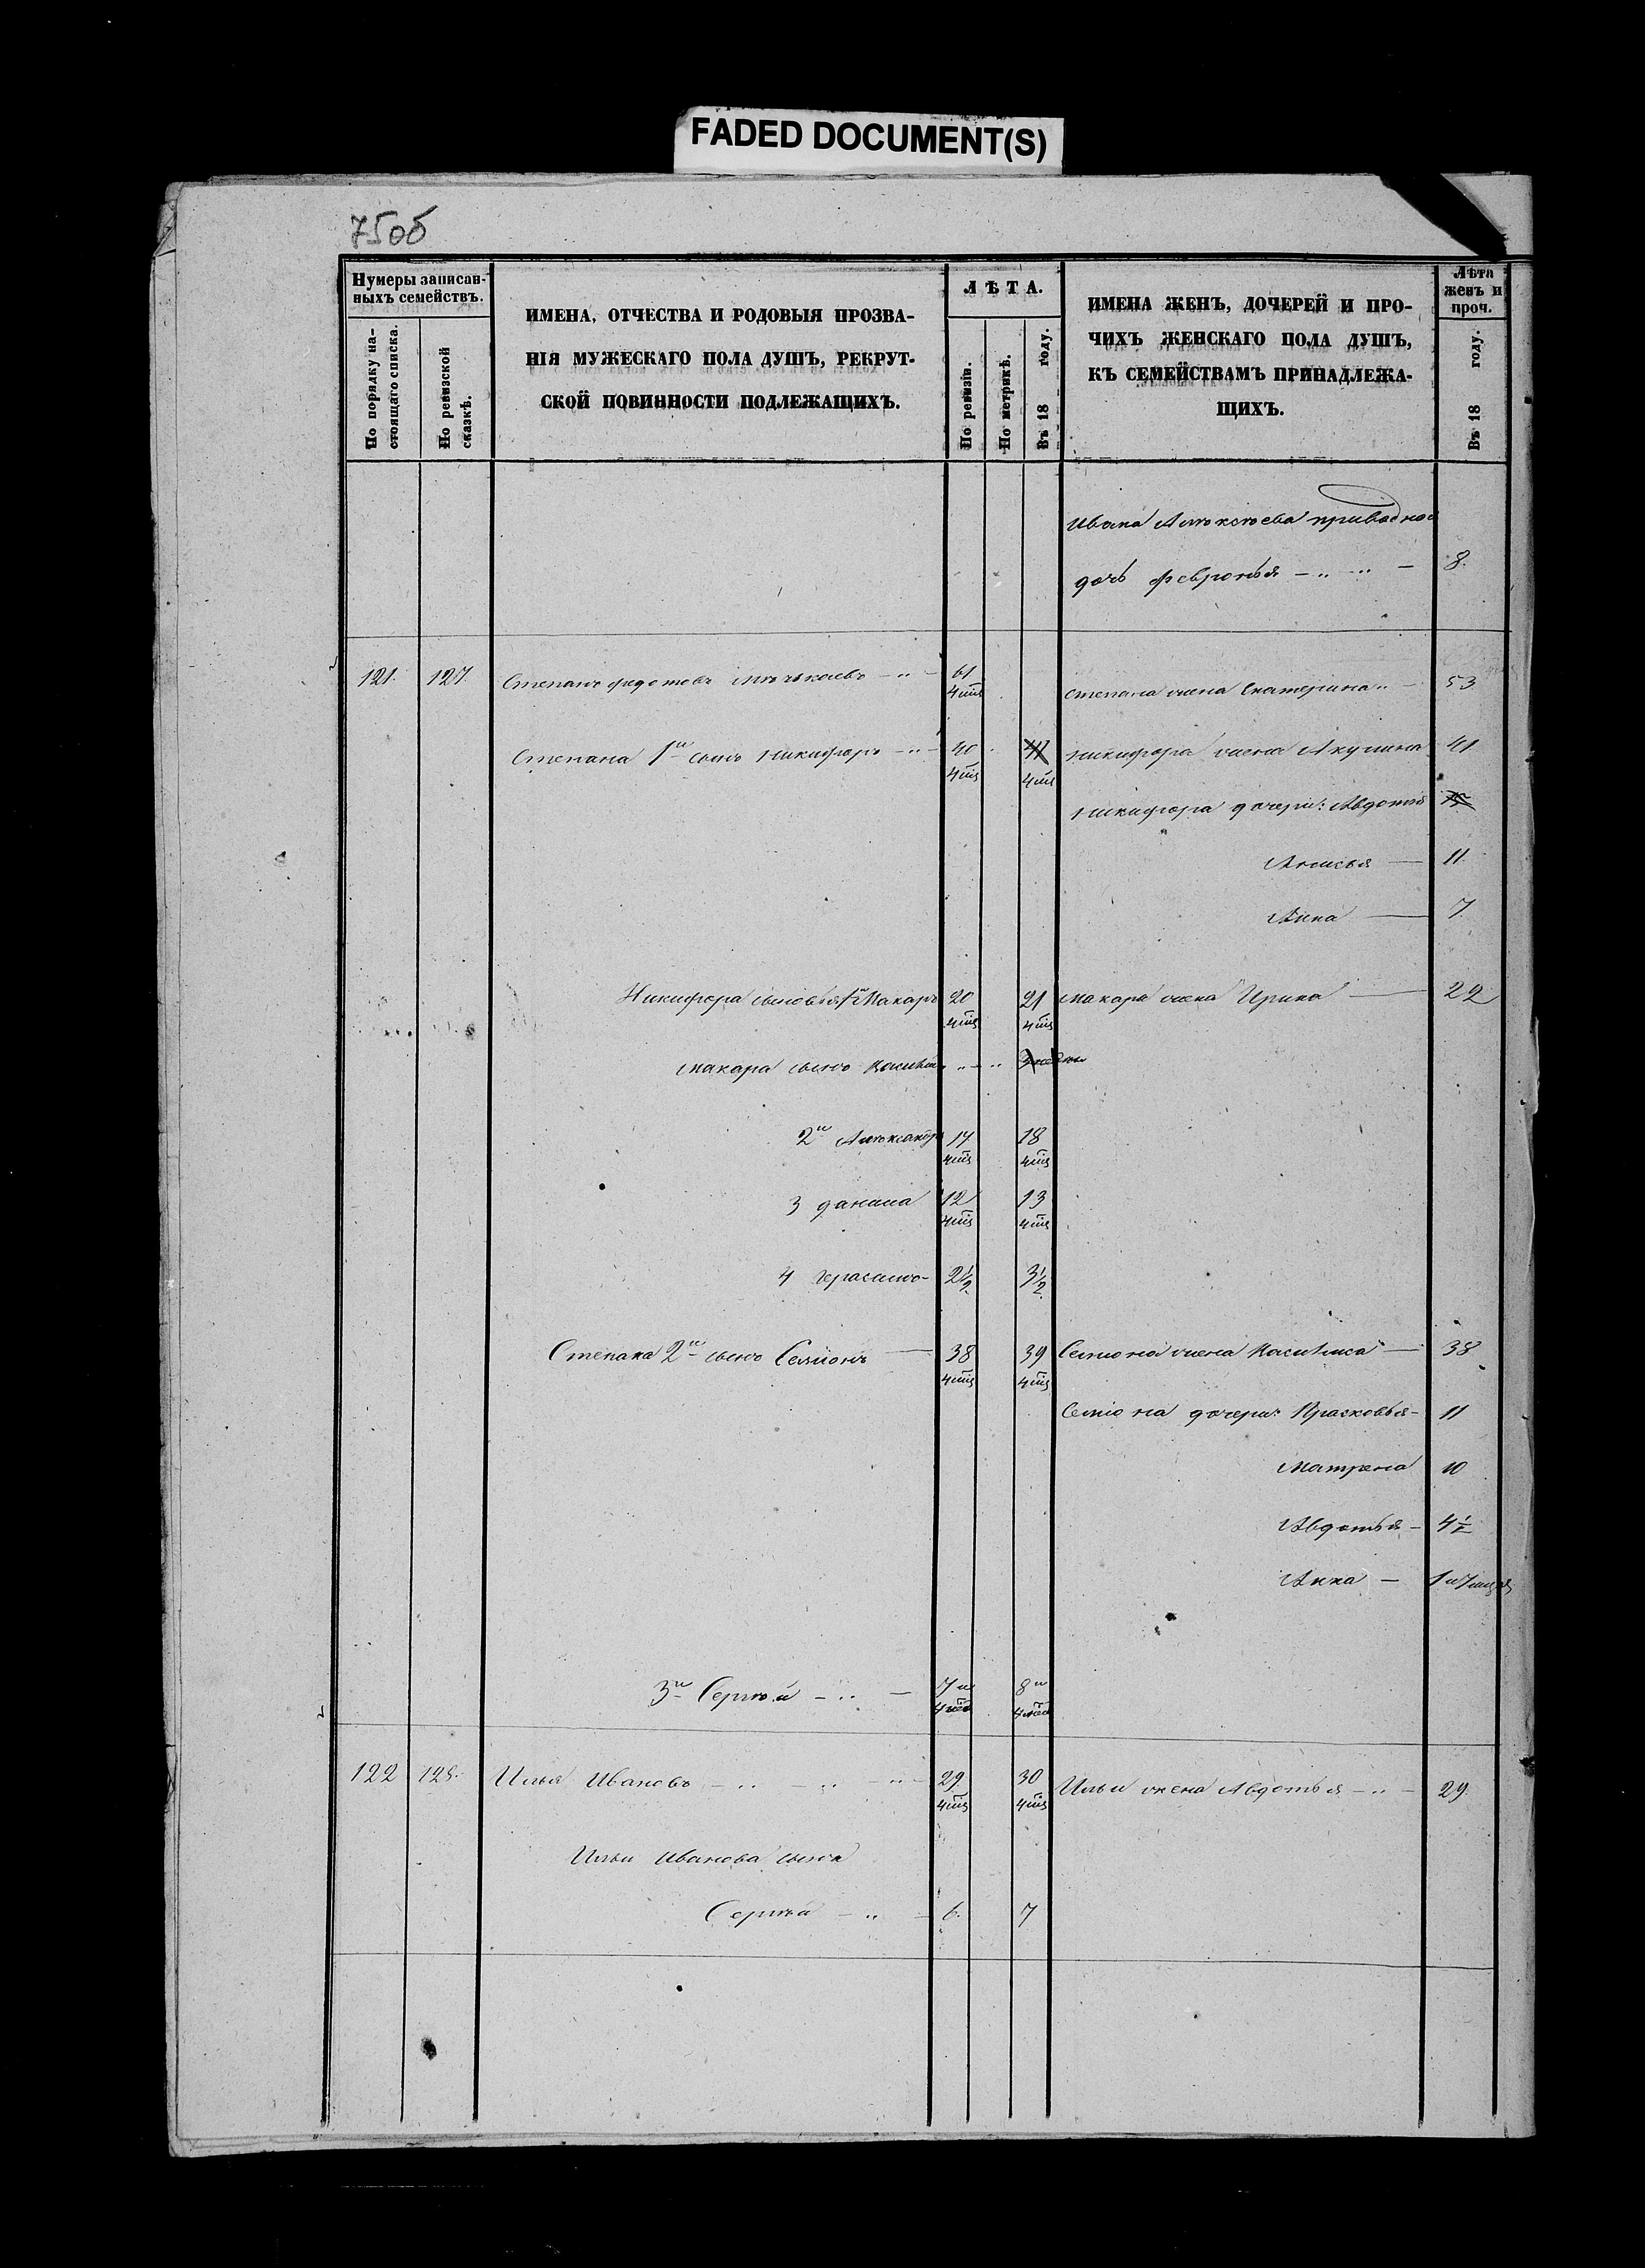 FADED DOCUMENT(S)
75об
Нумеры записан-
ныхъ семействъ.
По порядку на-
стоящаго списка.
По ревизской
сказкѣ.
ИМЕНА, ОТЧЕСТВА И РОДОВЫЯ ПРОЗВА-
НІЯ МУЖЕСКАГО ПОЛА ДУШЪ, РЕКРУТ-
СКОЙ ПОВИННОСТИ ПОДЛЕЖАЩИХЪ.
ЛѢТА.
По ревизіи.
По метрикѣ.
Въ 18 году.
ИМЕНА ЖЕНЪ, ДОЧЕРЕЙ И ПРО-
ЧИХЪ ЖЕНСКАГО ПОЛА ДУШЪ,
КЪ СЕМЕЙСТВАМЪ ПРИНАДЛЕЖА-
ЩИХЪ.
Лѣта
женъ и
проч.
Въ 18 году.
Ивана Алексеева приводная
дочь Февронья 8.
121. 127. Степанъ Федотовъ 61 Степана жена Екатерина 53
4 м
Степана 1й сынъ Никифоръ 40 41 Никифора жена Акулина 41
4 м 4 м
Никифора дочери: Авдотья
Анисья 11
Анна 7
Никифора сыновья 1й Макаръ 20 21 Макара жена Ирина 22
4 м 4 м
Макара сынъ Василий
2й Александр 17 18
4 м 4 м
3 Данила 12 13
4 м 4 м
4 Герасимъ 2½ 3½
Степана 2й сынъ Семионъ 38 39 Семиона жена Василиса 38
4 м 4 м
Семиона дочери: Прасковья 11
Матрена 10
Авдотья 4½
Анна 1 и 7 м
3й Сергей 7 и 8 и
4 м 4 м
122 128. Илья Ивановъ 29 30 Ильи жена Авдотья 29.
4 м 4 м
Ильи Иванова сынъ
Сергей 6. 7